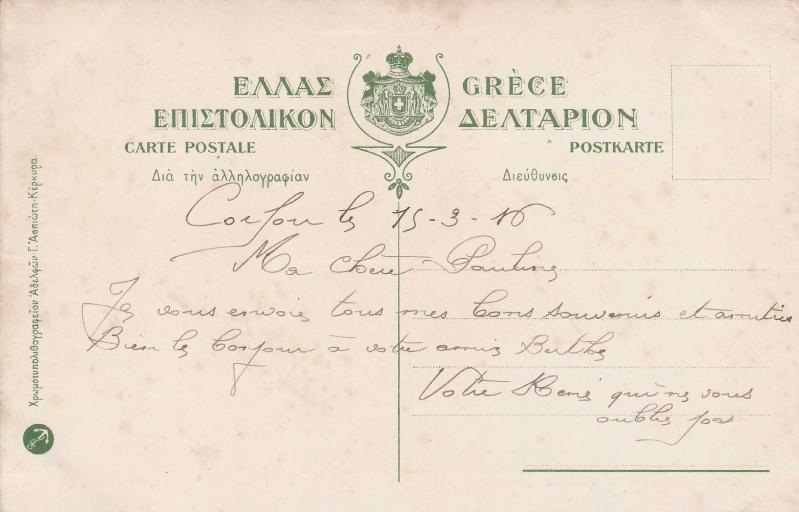 ΕΛΛΑΣ GRÈCE
ΕΠΙΣΤΟΛΙΚΟΝ ΔΕΛΤΑΡΙΟΝ
CARTE POSTALE POSTKARTE
Διὰ τὴν ἀλληλογραφίαν Διεύθυνσις
Corfou le 15-3-16
Ma chère Pauline
Je vous envoie tous mes bons souvenirs et amitiés
Bien le bonjour à votre amie Berthe
Votre René qui ne vous
oublie pas
Χρωμοτυπολιθογραφεῖον Ἀδελφῶν Γ. Ἀσπιώτη-Κέρκυρα.